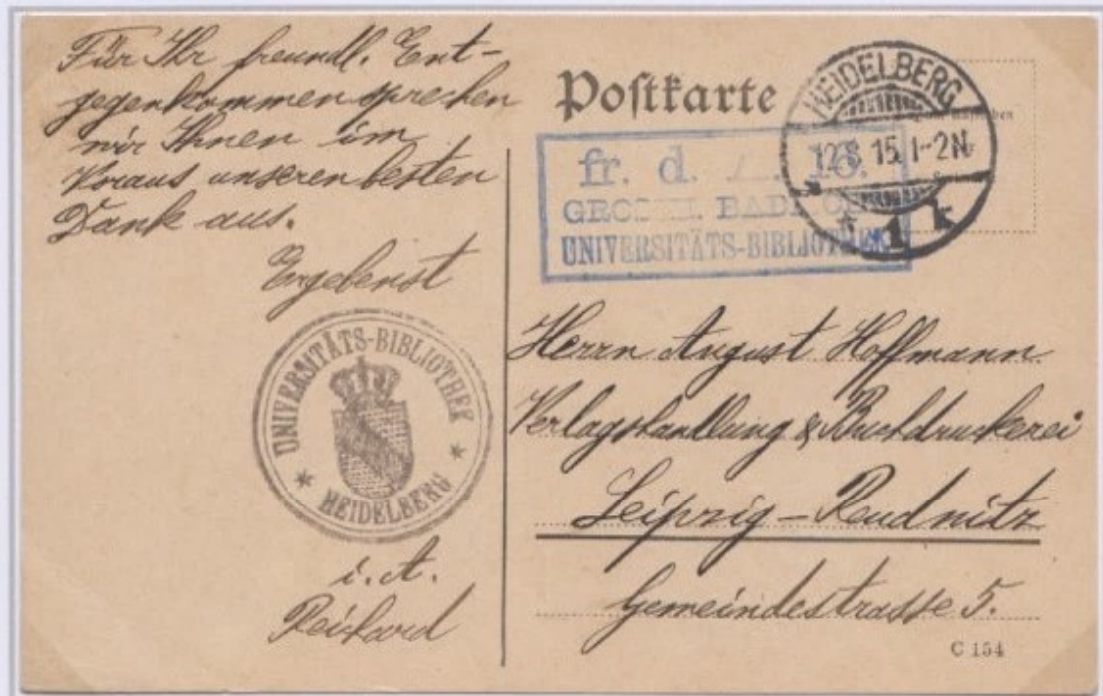 Für Ihr freundl. Ent-
gegenkommen sprechen
wir Ihnen im
Voraus unseren besten
Dank aus.
Ergebenst
UNIVERSITÄTS-BIBLIOTHEK
* HEIDELBERG *
i. A.
Postkarte
HEIDELBERG
15. 1-2N.
* 1 k
fr. d.
UNIVERSITÄTS-BIBLIOTHEK
Herrn August Hoffmann
Verlagshandlung & Buchdruckerei
Leipzig-Reudnitz
Gemeindestrasse 5.
C 154